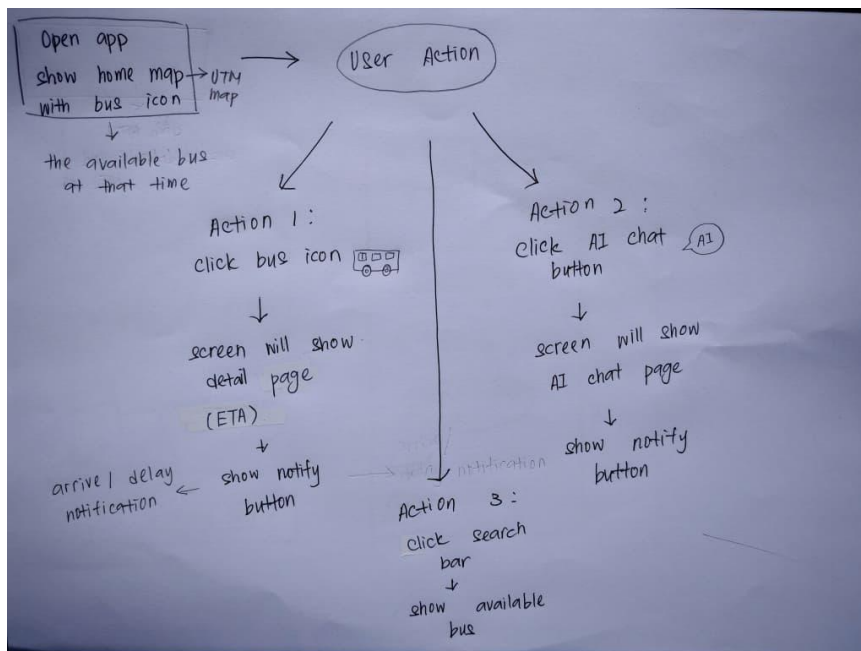 Open app
show home map
with bus icon
UTM
map
the available bus
at that time
User Action
Action 1:
click bus icon
screen will show
detail page
(ETA)
show notify
button
arrive/delay
notification
Action 2:
click AI chat
button
AI
screen will show
AI chat page
show notify
button
notification
Action 3:
click search
bar
show available
bus